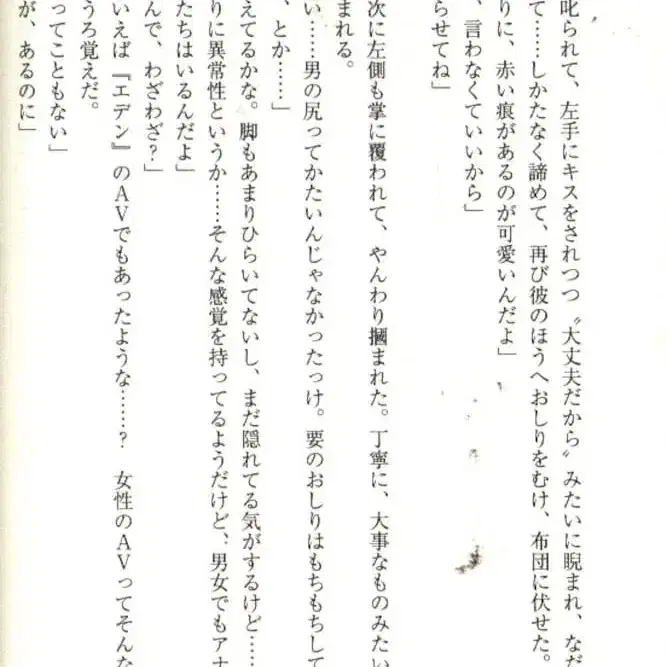 叱られて、左手にキスをされつつ〝大丈夫だから〟みたいに睨まれ、なだ
て……しかたなく諦めて、再び彼のほうへおしりをむけ、布団に伏せた。
りに、赤い痕があるのが可愛いんだよ」
、言わなくていいから」
らせてね」
次に左側も掌に覆われて、やんわり摑まれた。丁寧に、大事なものみたい
まれる。
い……男の尻ってかたいんじゃなかったっけ。要のおしりはもちもちして
、とか……」
えてるかな。脚もあまりひらいてないし、まだ隠れてる気がするけど……
りに異常性というか……そんな感覚を持ってるようだけど、男女でもアナ
たちはいるんだよ」
んで、わざわざ？」
いえば『エデン』のAVでもあったような……？　女性のAVってそんな
うろ覚えだ。
ってこともない」
が、あるのに」